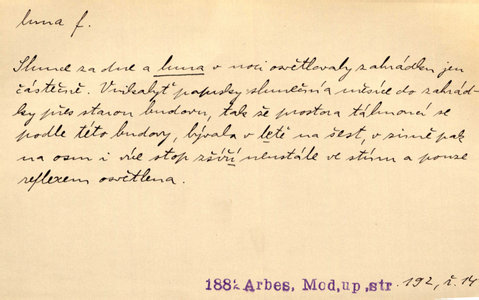 luna f.
Slunce za dne a luna v noci osvětlovaly zahrádku jen
částečně. Vnikalyť paprsky sluneční a měsíce do zahrád-
ky přes starou budovu, tak že prostora táhnoucí se
podle této budovy, bývala v letě na šest, v zimě pak
na osm i více stop zšíří neustále ve stínu a pouze
reflexem osvětlena.
1882 Arbes, Mod,up,str. 192, ř. 14